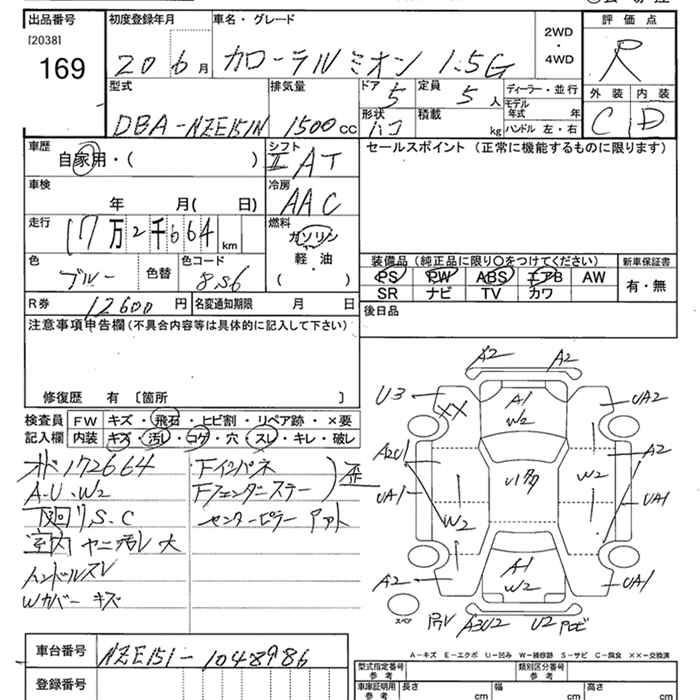 出品番号 初度登録年月 車名・グレード 2WD・4WD 評価点
[2038] 169 20 6月 カローラルミオン 1.5G R
型式 排気量 ドア 5 定員 5人 ディーラー・並行 外装 内装
DBA-NZE151N 1500cc 形状 ハコ 積載 kg モデル年式 年 ハンドル 左・右 C D
車歴 自家用・( ) シフト II AT セールスポイント (正常に機能するものに限ります)
車検 年 月( 日) 冷房 AAC
走行 17万2千664km 燃料 ガソリン 軽・油 ( )
色 ブルー 色替 色コード 8S6
装備品 (純正品に限り○をつけてください) 新車保証書
PS PW ABS エアB AW 有・無
SR ナビ TV カワ
R券 12600円 名変通知期限 月 日 後日品
注意事項申告欄 (不具合内容等は具体的に記入して下さい)
修復歴 有 [箇所 ]
検査員 FW キズ・飛石・ヒビ割・リペア跡・×要
記入欄 内装 キズ・汚レ・コゲ・穴・スレ・キレ・破レ
メーター172664 Fインパネ
A・U・W2 Fフェンダーステー 歪
下廻りS・C センターピラー アット
室内 ヤニ汚レ 大
ハンドルスレ
Wカバー キズ
A2 A2
U3 XX A1 W2 UA2
A2U1 A2
UA1 W2 W2 UA1
A2 A1 W2 UA1
スペア A3U2 U2
A-キズ E-エクボ U-凹み W-補修跡 S-サビ C-腐食 XX-交換済
車台番号 NZE151-1048986
登録番号
型式指定番号 参考 類別区分番号 参考
車庫証明用 参考 長さ cm 幅 cm 高さ cm